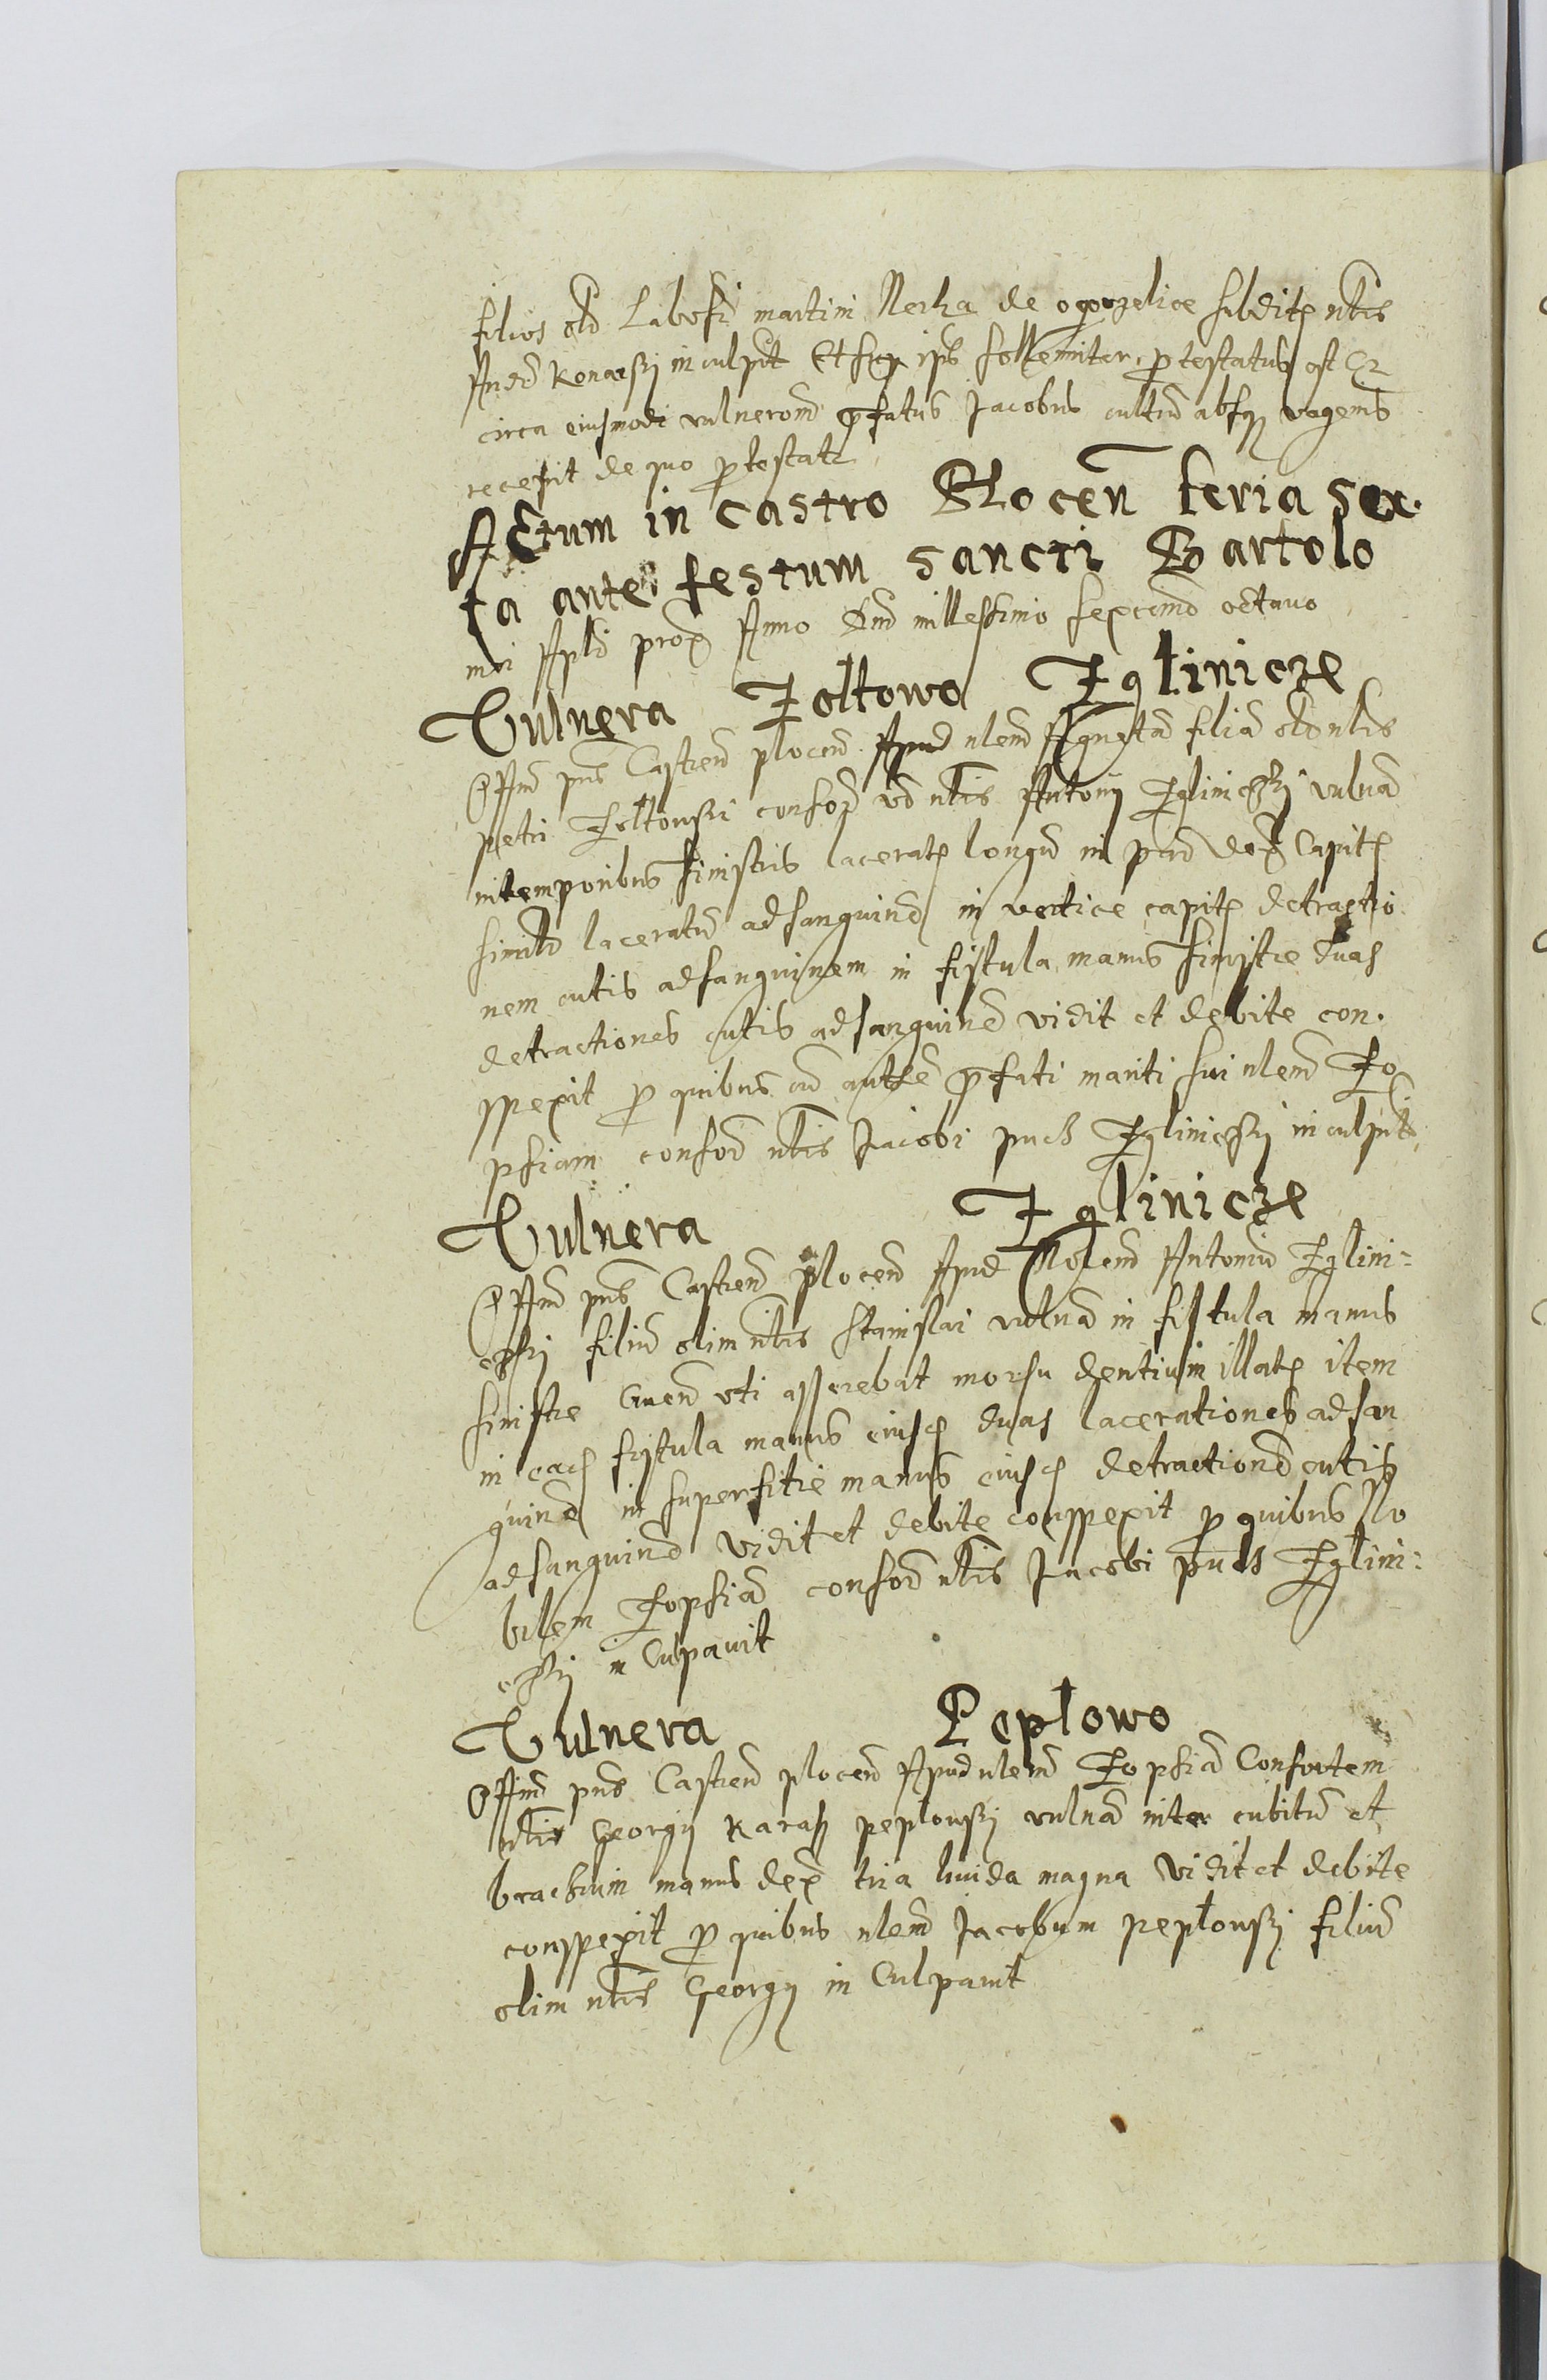 filios olim Labosi martini Nerka de ogorzelice subditos nobilis
Andreae Konarsky inculpavit Et super ipsos sollemniter protestatus est Quia
circa eiusmodi vulnerationem praefatus Jacobus cultrum absque vagenis
recepit de quo protestatur
Actum in castro Plocen feria sex.
ta ante festum sancti Bartolo
mei Apli proxima Anno Dni millessimo sexcentmo octauo
Vulnera Zoltowo Zglinicze
Min pns Castren plocen Apud nlem Agnetam filiam olim nlis
petri Zoltowski consortem vero nlis Antonij Zgliniczky vulnera
in temporibus sinistris laceratum longum in parte dex capitis
similiter laceratum ad sanguinem in vertice capitis detractio
nem cutis ad sanguinem in fistula manus sinistre duas
detractiones cutis ad sanguinem vidit et debite con.
spexit pro quibus cum autoritate praefati mariti sui nlem Zo
phiam consortem nlis Jacobi puch Zgliniczky inculpavit
Vulnera Zglinicze
Min pns Castren plocen Apud Nobilem Antonium Zglini:
czky filium olim nlis Stanislai vulnera in fistula manus
sinistre Cruentum uti asserebat morsu dentium illatum item
in eadem fistula manus eiusdem duas lacerationes ad san
guinem in superfitie manus eiusdem detractionem cutis
ad sanguinem vidit et debite conspexit pro quibus No
bilem Zophiam consortem nlis Jacobi puch Zglini:
czky in Culpauit
Vulnera Peplowo
Min pns Castren plocen Apud nlem Zophiam Consortem
nlis Georgij Karas peplowsky vulnera inter cubitum et
brachium manus dex tria liuida magna Vidit et debite
conspexit pro quibus nlem Jacobum peplowsky filium
olim nlis Georgij in Culpauit